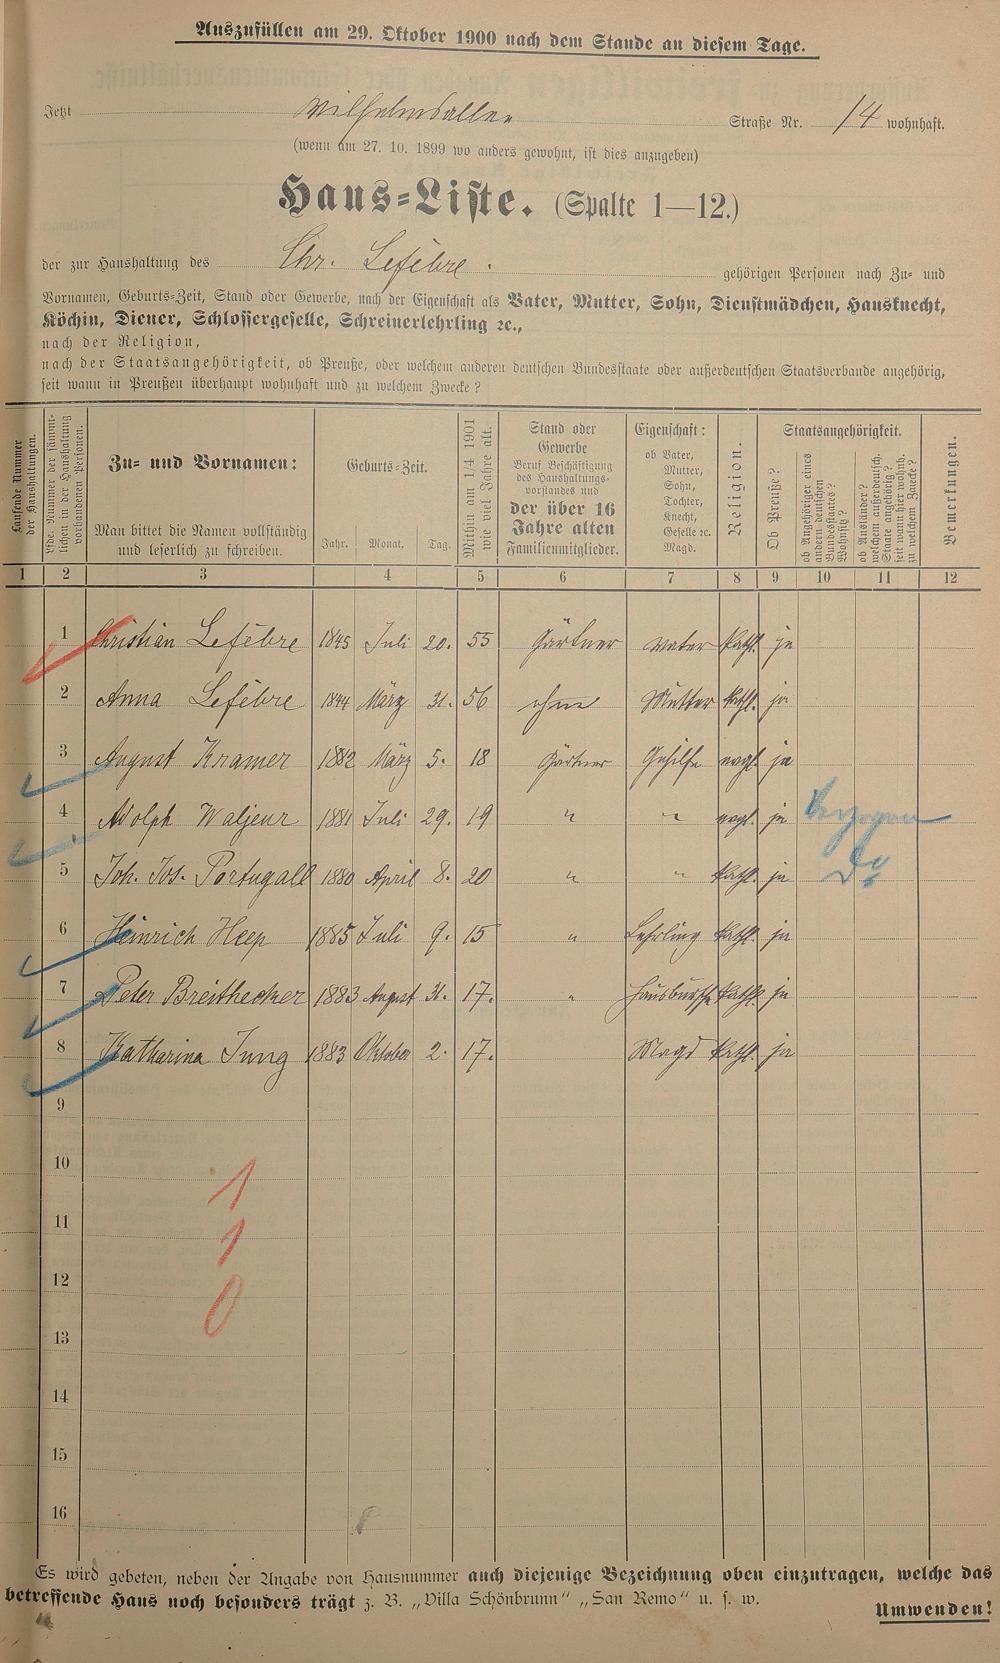 Auszufüllen am 29. Oktober 1900 nach dem Stande an diesem Tage.
Jetzt Wilhelmsallee Straße Nr. 14 wohnhaft.
(wenn am 27. 10. 1899 wo anders gewohnt, ist dies anzugeben)
Haus-Liste. (Spalte 1—12.)
der zur Haushaltung des Chr. Lefèbre. gehörigen Personen nach Zu- und
Vornamen, Geburts-Zeit, Stand oder Gewerbe, nach der Eigenschaft als Vater, Mutter, Sohn, Dienstmädchen, Hausknecht,
Köchin, Diener, Schlossergeselle, Schreinerlehrling ꝛc.,
nach der Religion,
nach der Staatsangehörigkeit, ob Preuße, oder welchem anderen deutschen Bundesstaate oder außerdeutschen Staatsverbande angehörig,
seit wann in Preußen überhaupt wohnhaft und zu welchem Zwecke?
Laufende Nummer der Haushaltungen.
Lfde. Nummer der sämmtlichen in der Haushaltung vorhandenen Personen.
Zu- und Vornamen:
Man bittet die Namen vollständig
und leserlich zu schreiben.
Geburts-Zeit.
Jahr. Monat. Tag.
Mithin am 1/4 1901 wie viel Jahre alt.
Stand oder
Gewerbe
Beruf Beschäftigung
des Haushaltungs-
vorstandes und
der über 16
Jahre alten
Familienmitglieder.
Eigenschaft:
ob Vater,
Mutter,
Sohn,
Tochter,
Knecht,
Geselle ꝛc.
Magd.
Religion.
Staatsangehörigkeit.
Ob Preuße?
ob Angehöriger eines andern deutschen Bundesstaates? Wohnsitz?
ob Ausländer? welchem außerdeutsch. Staate angehörig? seit wann hier wohnh. zu welchem Zwecke?
Bemerkungen.
1 2 3 4 5 6 7 8 9 10 11 12
1 Christian Lefèbre 1845 Juli 20. 55 Gärtner Vater kath. ja
2 Anna Lefèbre 1844 März 31. 56 ohne Mutter kath. ja
3 August Kramer 1882 März 5. 18 Gärtner Gehilfe evgl. ja
4 Adolph Waljeur 1881 Juli 29. 19 " " evgl. ja verzogen
5 Joh. Jos. Portugall 1880 April 8. 20 " " kath. ja do
6 Heinrich Heep 1885 Juli 9. 15 " Lehrling kath. ja
7 Peter Breithecker 1883 August 31. 17. " Hausbursche kath. ja
8 Katharina Jung 1883 Oktober 2. 17. Magd kath. ja
9
10
1
11
1
12
0
13
14
15
16
Es wird gebeten, neben der Angabe von Hausnummer auch diejenige Bezeichnung oben einzutragen, welche das
betreffende Haus noch besonders trägt z. B. „Villa Schönbrunn“ „San Remo“ u. s. w.
Umwenden!